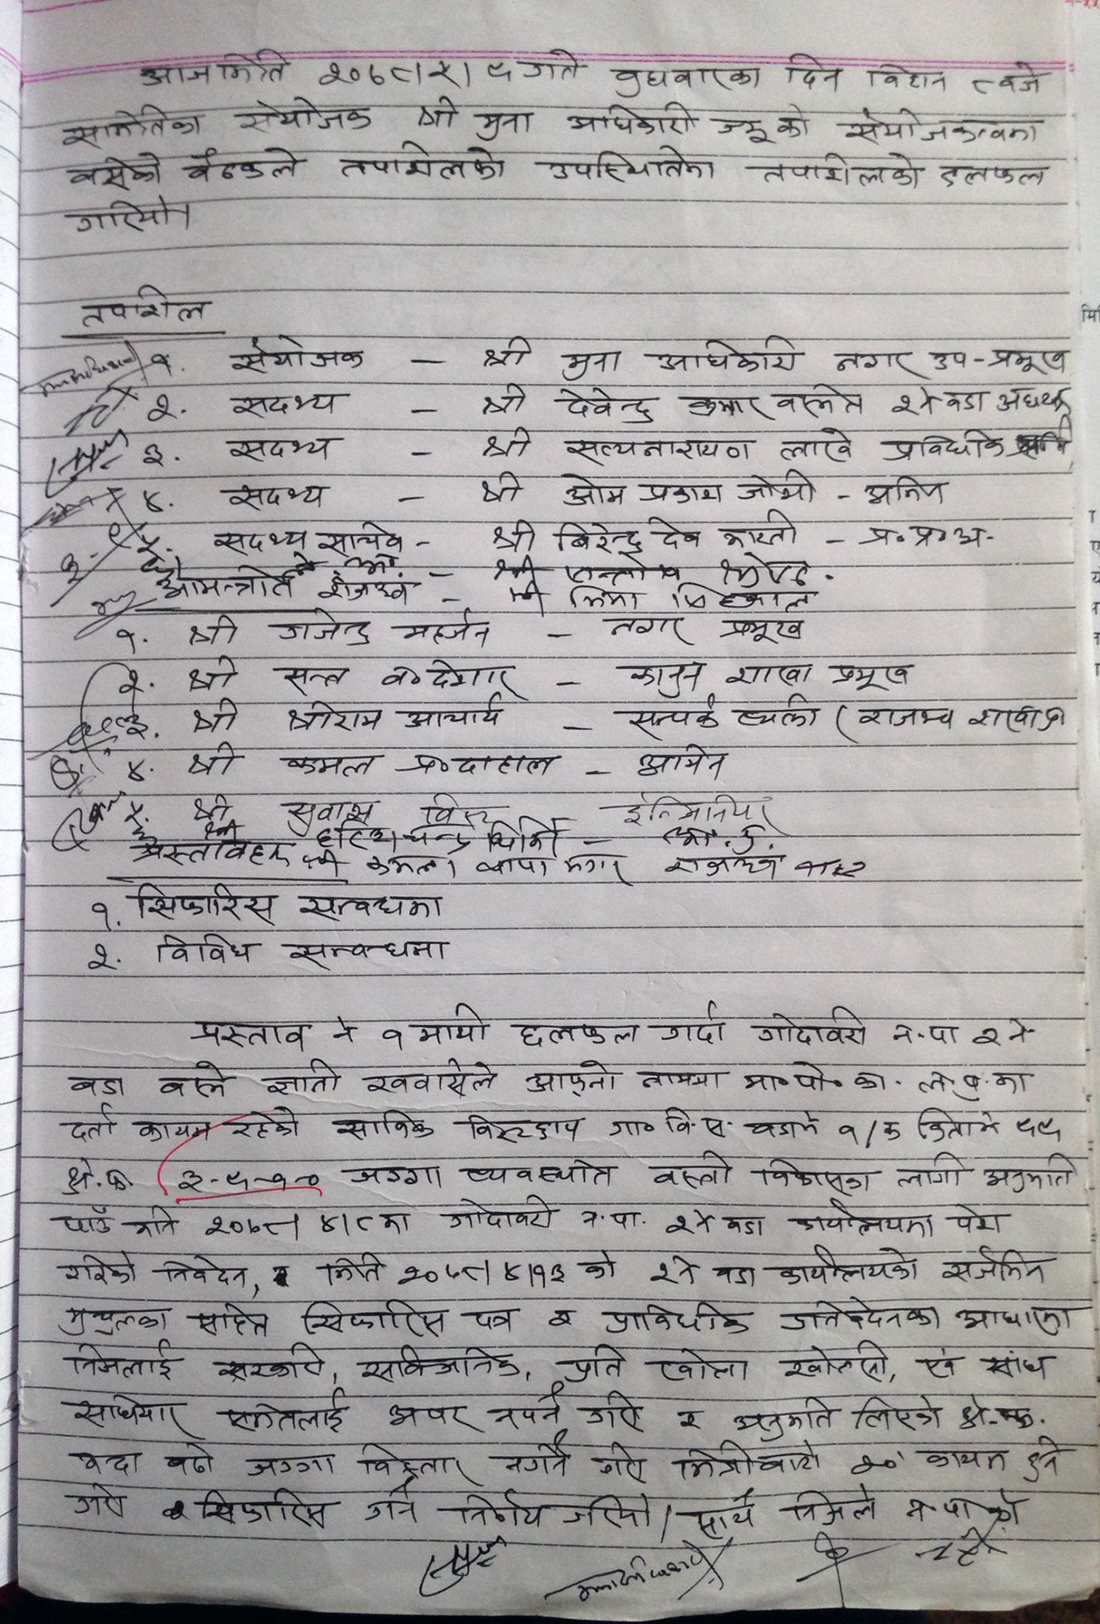 आज मिति २०७८।५।९ गते वुधवारका दिन विहान ८ वजे
समितिका संयोजक श्री मुना अधिकारी ज्यूको संयोजकत्वमा
वसेको वैठकले तपाशिलको उपस्थितिमा तपाशिलको छलफल
गरियो।
तपाशिल
१. संयोजक – श्री मुना अधिकारी नगर उप-प्रमुख
२. सदश्य – श्री देवेन्द्र कुमार वस्नेत २ नं वडा अध्यक्ष
३. सदश्य – श्री सत्यनारायण लाखे प्रविधिक
४. सदश्य – श्री ओम प्रकाश जोशी – अमिन
५. सदश्य सचिव – श्री बिरेन्द्र देव भारती – प्र.प्र.अ.
६. – श्री सन्तोष श्रेष्ठ.
आमन्त्रीत – श्री
१. श्री गजेन्द्र महर्जन – नगर प्रमुख
२. श्री सन्त व॰ देशार – कानुन शाखा प्रमुख
३. श्री श्रीराम आचार्य – सम्पर्क व्यक्ती (राजश्व शाखा)
४. श्री कमल प्र॰ दाहाल – अमिन
५. श्री सुवास विष्ट इन्जिनियर
६ श्री हरिश्चन्द्र –
प्रस्तावहरु श्री कमला थापा मगर राजश्व शाखा
१. सिफारिस सम्वन्धमा
२. विविध सम्वन्धमा
प्रस्ताव नं १ माथी छलफल गर्दा गोदावरी न.पा २ नं
वडा वस्ने ज्ञानी खवासले आफ्नो नाममा मा॰पो॰का. ल.पु.मा
दर्ता कायम रहेको साविक विसङ्खु गा॰वि.स. वडा नं १/क कित्ता नं ५९
क्षे.फ. ३-९-१-० जग्गा व्यवस्थीत वस्ती विकासका लागी अनुमति
पाउँ भनि २०७८।४।८ मा गोदावरी न.पा. २ नं वडा कार्यालयमा पेश
गरेको निवेदन, र मिति २०७८।४।१३ को २ नं वडा कार्यालयको सर्जमिन
मुचुल्का सहित सिफारिस पत्र र प्राविधिक प्रतिवेदनका आधारमा
निजलाई सरकारी, सार्वजनिक, प्रति खोला खोल्सी, एवं सांध
सधियार समेतलाई असर नपर्ने गरि र अनुमति लिएको क्षे.फ.
भन्दा वढी जग्गा विस्तार नगर्ने गरि भित्रीवाटो २०' कायम हुने
गरि र सिफारिस गर्ने निर्णय गरियो। साथै निजले न.पा को